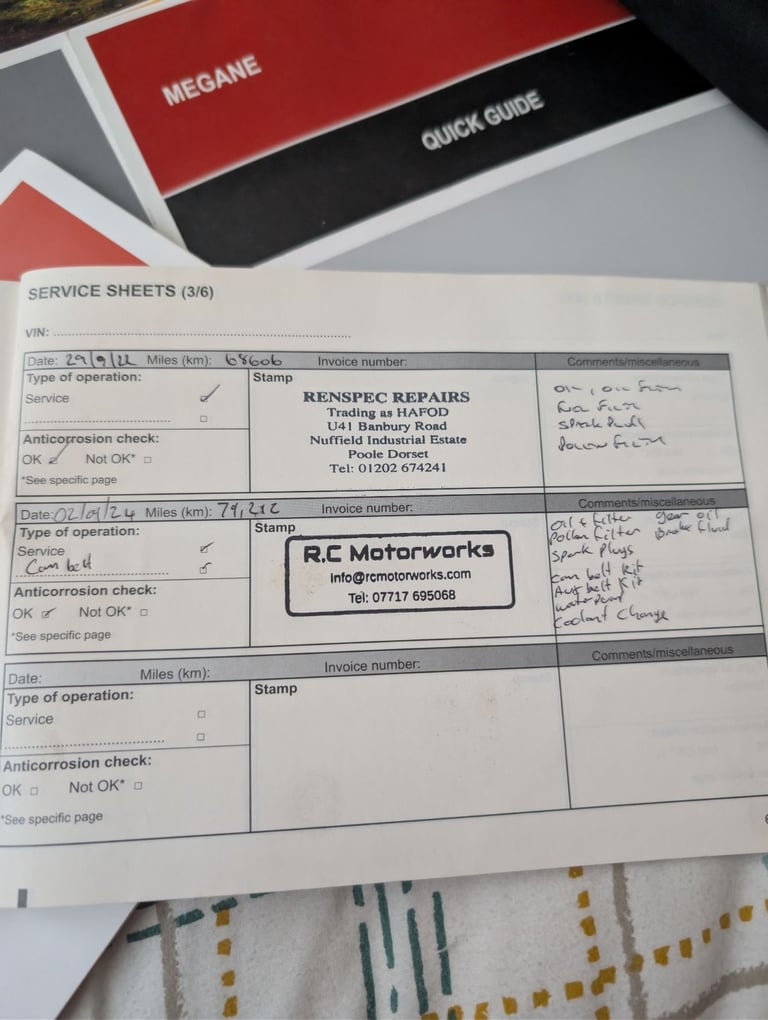 MEGANE
QUICK GUIDE
SERVICE SHEETS (3/6)
VIN:
Date: 29/9/22 Miles (km): 68606 Invoice number:
Comments/miscellaneous
Type of operation:
Service
Anticorrosion check:
OK Not OK*
*See specific page
Stamp
RENSPEC REPAIRS
Trading as HAFOD
U41 Banbury Road
Nuffield Industrial Estate
Poole Dorset
Tel: 01202 674241
Oil, Oil Filter
Filter
Spark Plugs
Pollen Filter
Date: 02/09/24 Miles (km): 79,212 Invoice number:
Comments/miscellaneous
Type of operation:
Service
Cam belt
Anticorrosion check:
OK Not OK*
*See specific page
Stamp
R.C Motorworks
Info@rcmotorworks.com
Tel: 07717 695068
Oil & filter gear oil
Pollan filter Brake fluid
Spark Plugs
cam belt Kit
Aux belt Kit
waterpump
Coolant Change
Date: Miles (km): Invoice number:
Comments/miscellaneous
Type of operation:
Service
Anticorrosion check:
OK Not OK*
*See specific page
Stamp